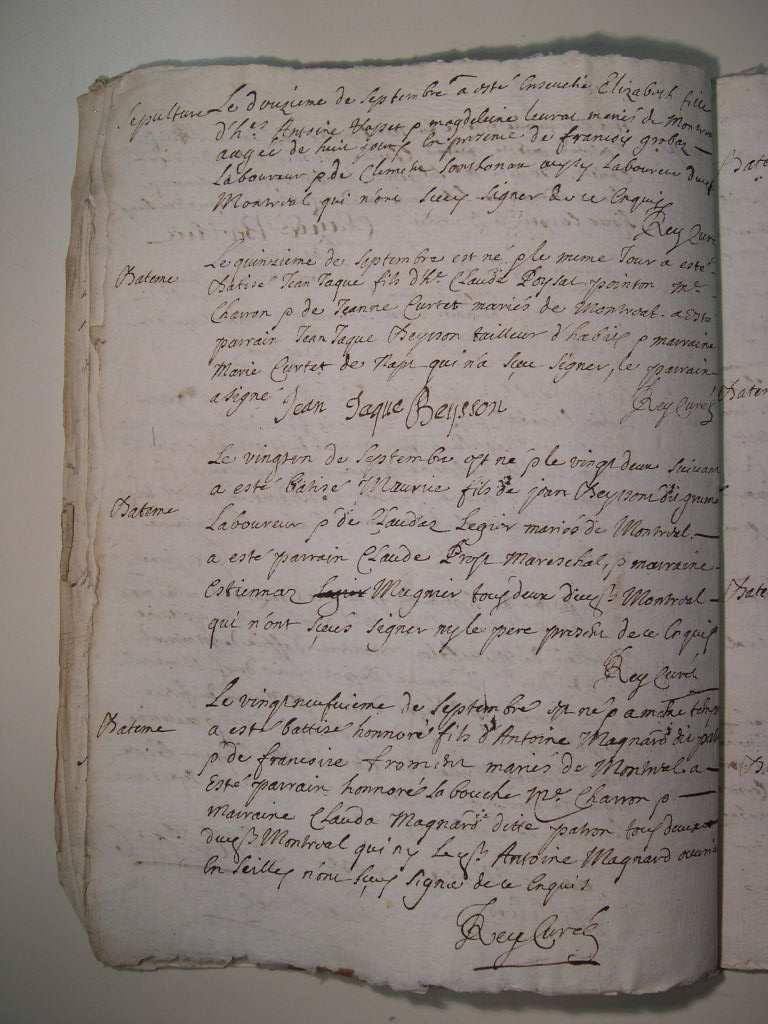 Sepulture Le douzieme de Septembre a esté Ensevelie Elizabeth fille
d'h.es Antoine Vasset & magdeleine levrat mariés de Montreval
aagée de huit jours En presence de françois
Laboureur & de Laboureur dud.
Montreval qui n'ont sceus signer de ce Enquis
Rey Curé
Bateme Le quinzieme de Septembre est né & le meme Jour a esté
Batisé Jean Jaque fils d'h.e Claude Poysat pointon M.e
Charron & de Jeanne Curtet mariés de Montreval. a Esté
parrain Jean Jaque Beysson tailleur d'habis & marraine
Marie Curtet de qui n'a sceu signer, le parrain
a signé Jean Jaque Beysson Rey Curé
Bateme Le vingt un de Septembre est né & le vingt deux suivant
a esté batisé Maurice fils de jean Beysson dit
Laboureur & de Claudaz Legier mariés de Montreval.
a esté parrain Claude Prost Mareschal, & marraine
Estiennaz Magnier tous deux dud. Montreval
qui n'ont sceus signer ny le pere present de ce Enquis
Rey Curé
Bateme Le vingt neufvieme de Septembre est né & a meme temps
a esté battisé honnoré fils d'Antoine Magnard dit
& de francoise fromen mariés de Montreval. a
Esté parrain honnoré Labouche M.e Charron &
marraine Clauda Magnard ditte patron tous deux
dud. Montreval qui ny led. Antoine Magnard
n'ont sceus signer de ce Enquis
Rey Curé